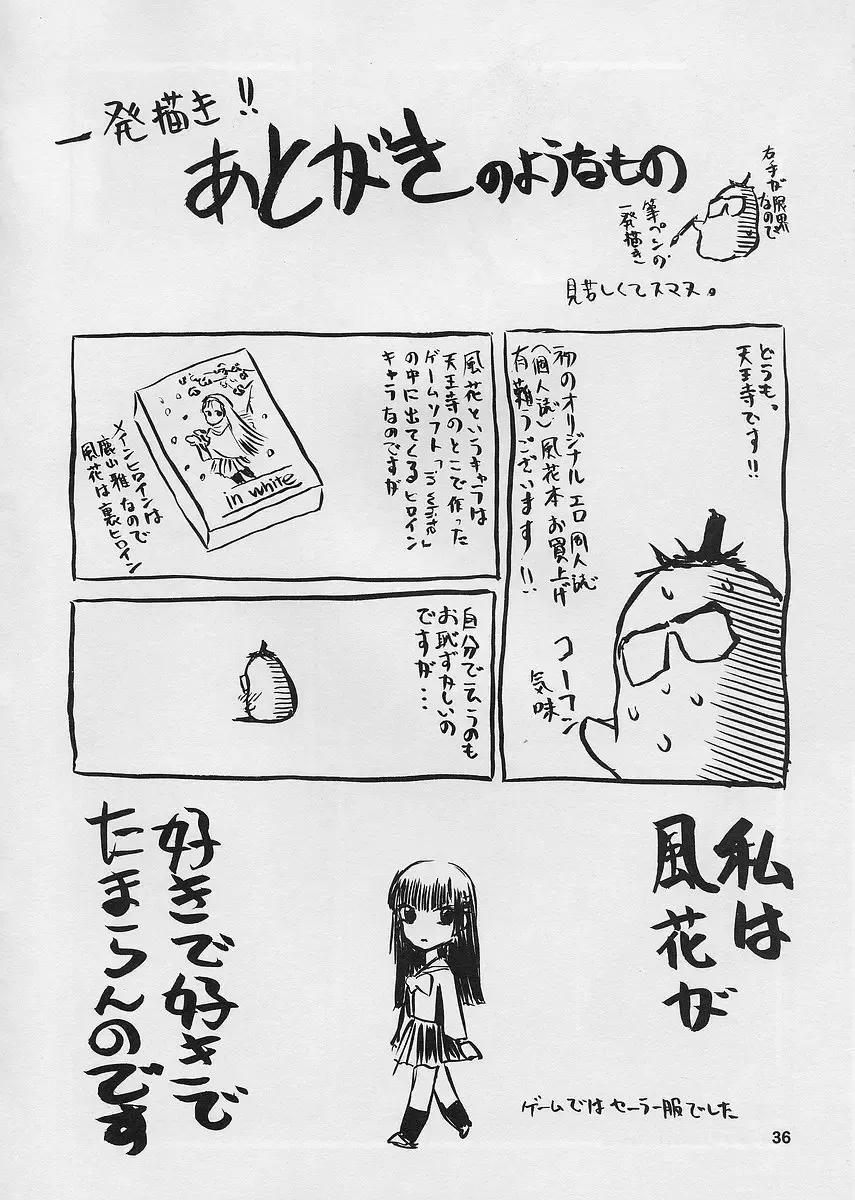 一発描き!!
あとがきのようなもの
右手が限界
なので
筆ペンの
一発描き
見苦しくてスマヌ。
どうも、
天王寺です!!
初のオリジナルエロ同人誌
(個人誌)風花本お買上げ
有難うございます!!
コーフン
気味
風花というキャラは
天王寺のとこで作った
ゲームソフト「in white」
の中に出てくるヒロイン
キャラなのですが
in white
メインヒロインは
鹿山雅なので
風花は裏ヒロイン
自分で云うのも
お恥ずかしいの
ですが・・・
私は
風花が
好きで好きで
たまらんのです
ゲームではセーラー服でした
36